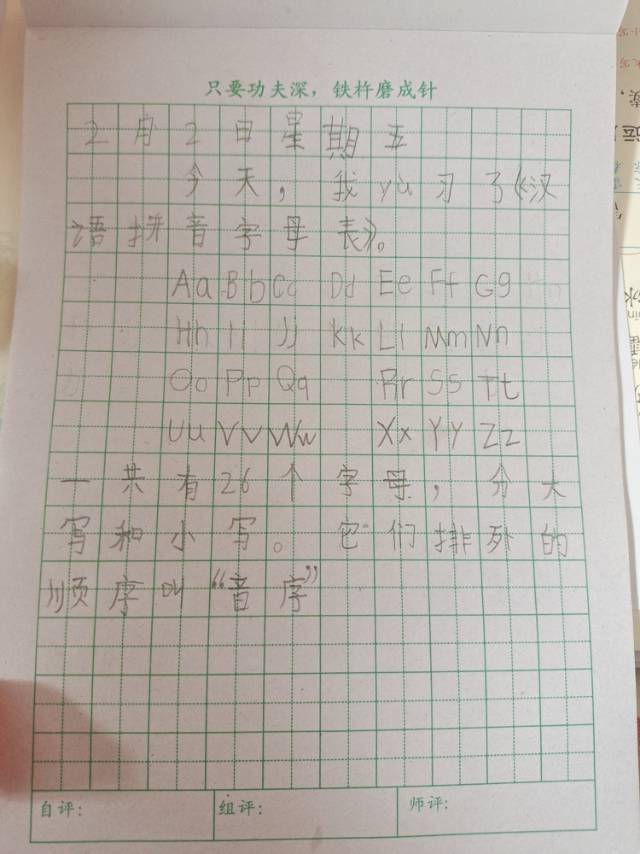 只要功夫深，铁杵磨成针
2月2日星期五
今天，我yu习了《汉
语拼音字母表》。
Aa Bb Cc Dd Ee Ff Gg
Hh Ii Jj Kk Ll Mm Nn
Oo Pp Qq Rr Ss Tt
Uu Vv Ww Xx Yy Zz
一共有26个字母，分大
写和小写。它们排列的
顺序叫“音序”
自评： 组评： 师评：